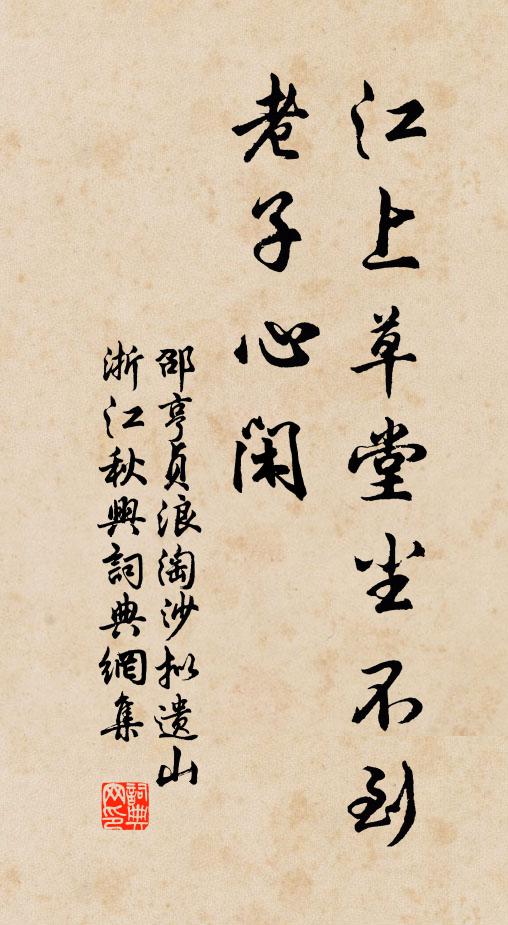 江上草堂尘不到
老子心闲
邵亨贞浪淘沙拟遗山
浙江秋興詞典網集
詞典网印